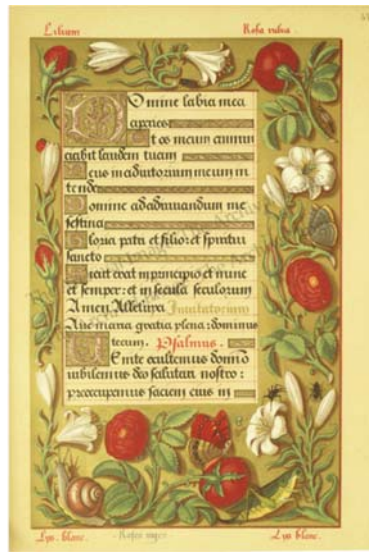 Lilium
Rosa rubra.
Domine labia mea
aperies
Et os meum annun
ciabit laudem tuam
Deus in adiutorium meum in
tende
Domine ad adiuvandum me
festina
Gloria patri et filio: et spiritui
sancto
Sicut erat in principio et nunc
et semper: et in secula seculorum
Amen Alleluya Invitatorium
Ave maria gratia plena: dominus
tecum. Psalmus.
Venite exultemus domino
iubilemus deo salutari nostro:
preoccupemus faciem eius in
Lys. blanc.
Lys blanc.